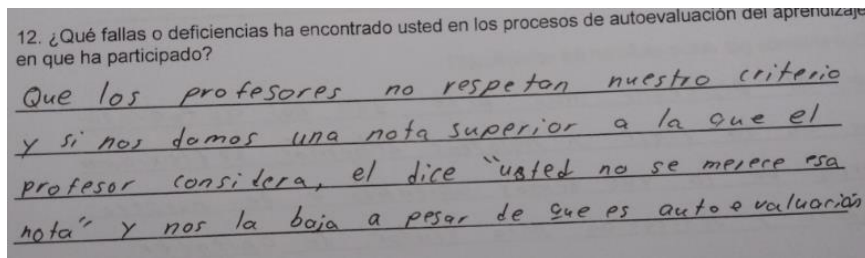 12. ¿Qué fallas o deficiencias ha encontrado usted en los procesos de autoevaluación del aprendizaje
en que ha participado?
Que los profesores no respetan nuestro criterio
y si nos damos una nota superior a la que el
profesor considera, el dice "usted no se merece esa
nota" y nos la baja a pesar de que es autoevaluación